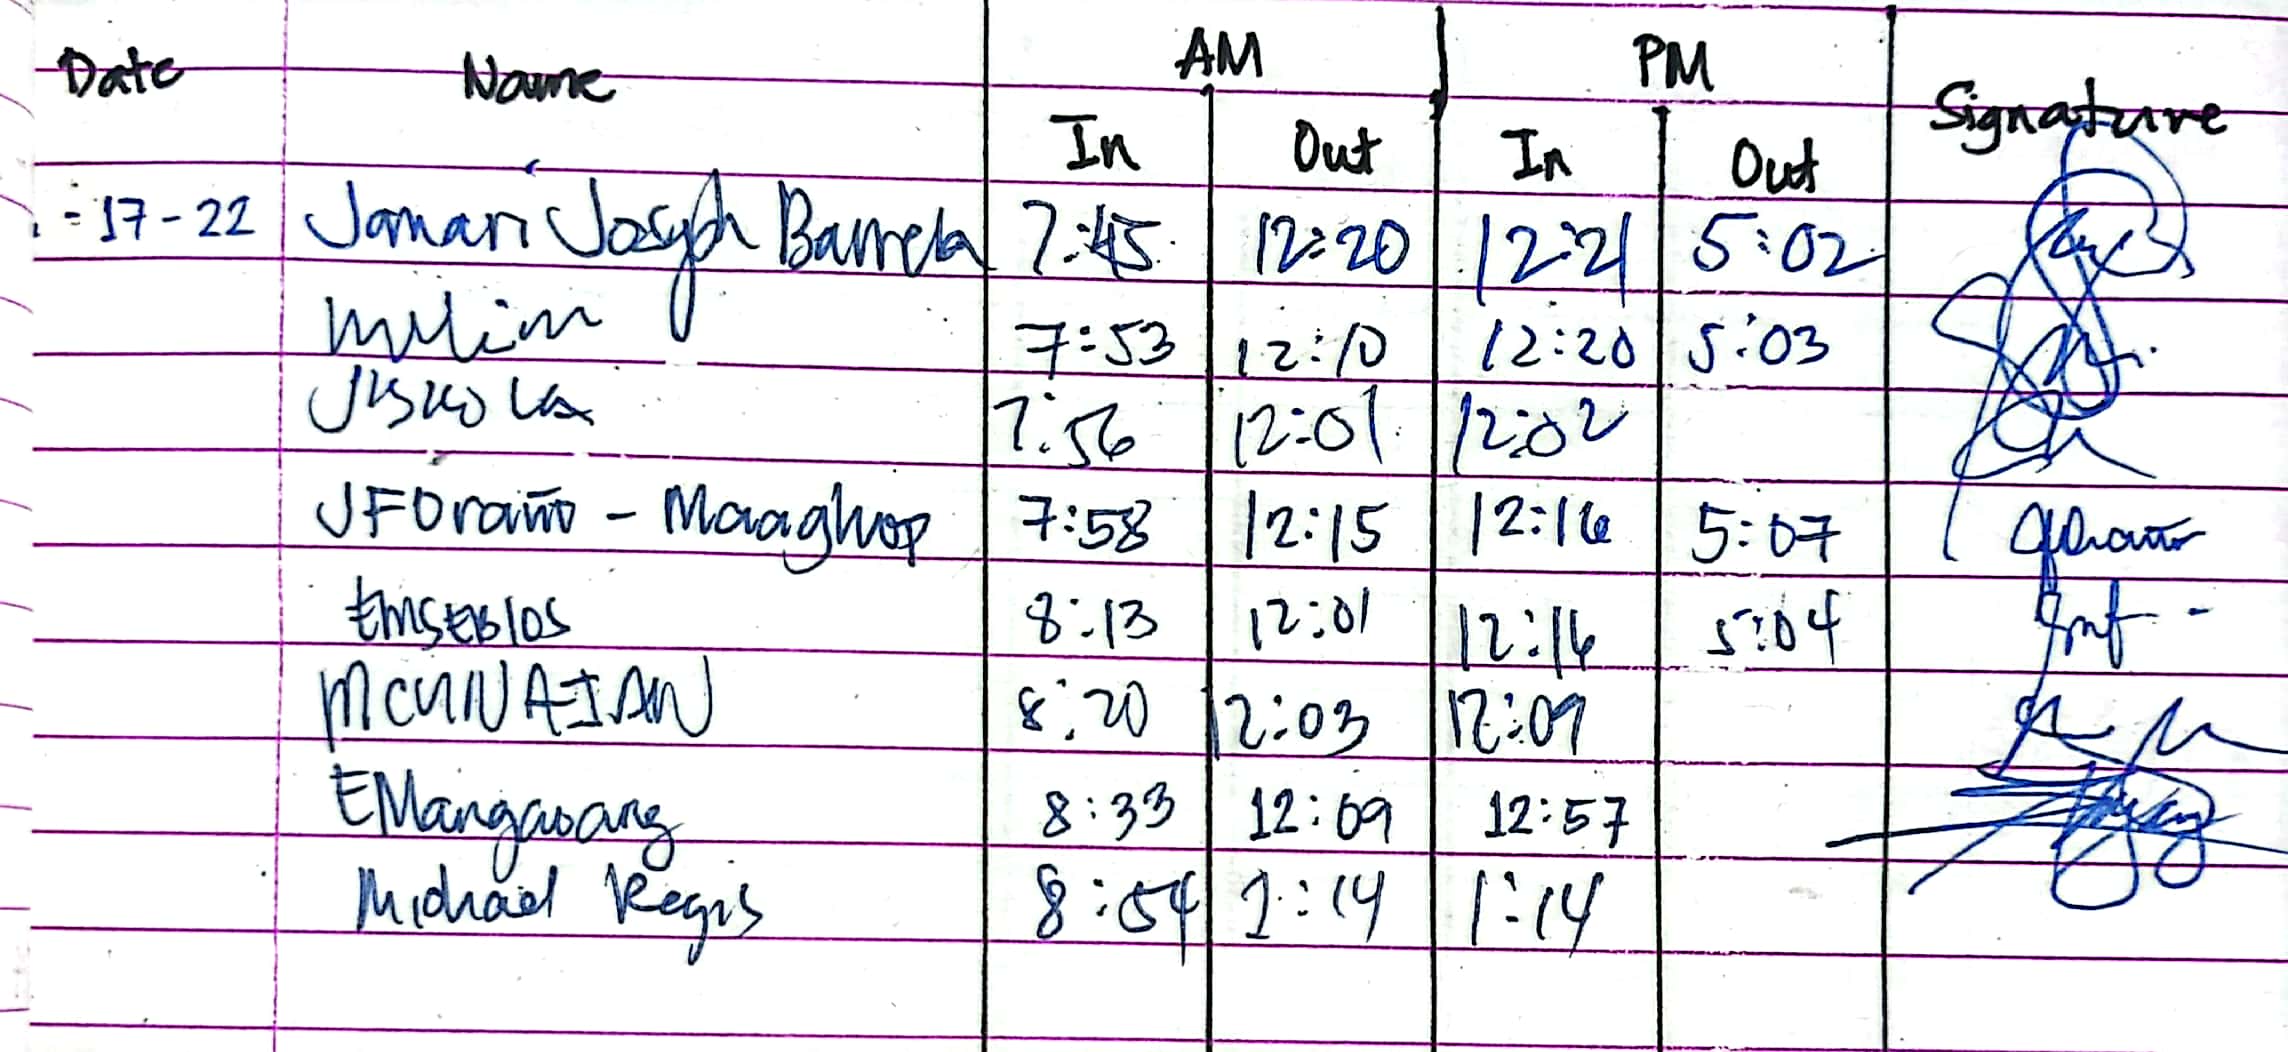 Date Name AM PM Signature
In Out In Out
17-22 Jomari Joseph Barrela 7:45 12:20 12:21 5:02
7:53 12:10 12:20 5:03
7:56 12:01 12:02
JFOraño - Maaghop 7:58 12:15 12:16 5:07
EMSEBLOS 8:13 12:01 12:16 5:04
8:20 12:03 12:09
EMangaoang 8:33 12:09 12:57
Michael Regis 8:54 1:14 1:14